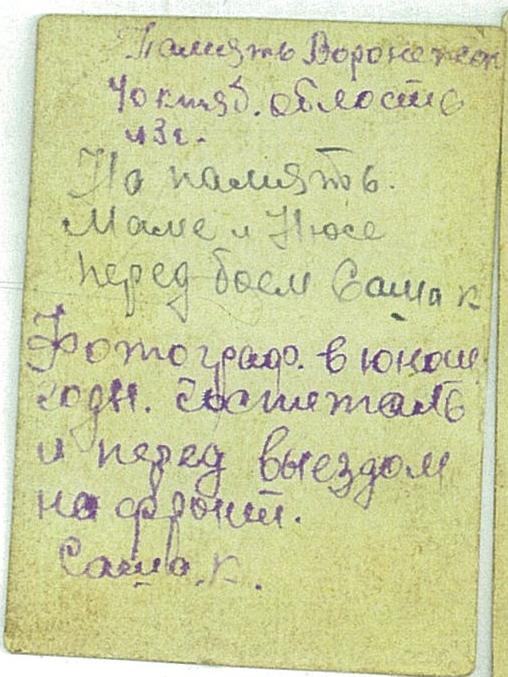 Память Воронежск
4 октяб. область
43 г.
На память.
Маме и Нюсе
перед боем Саша К
Фотограф. в юнош.
годы. Госпиталь
и перед выездом
на фронт.
Саша. К.